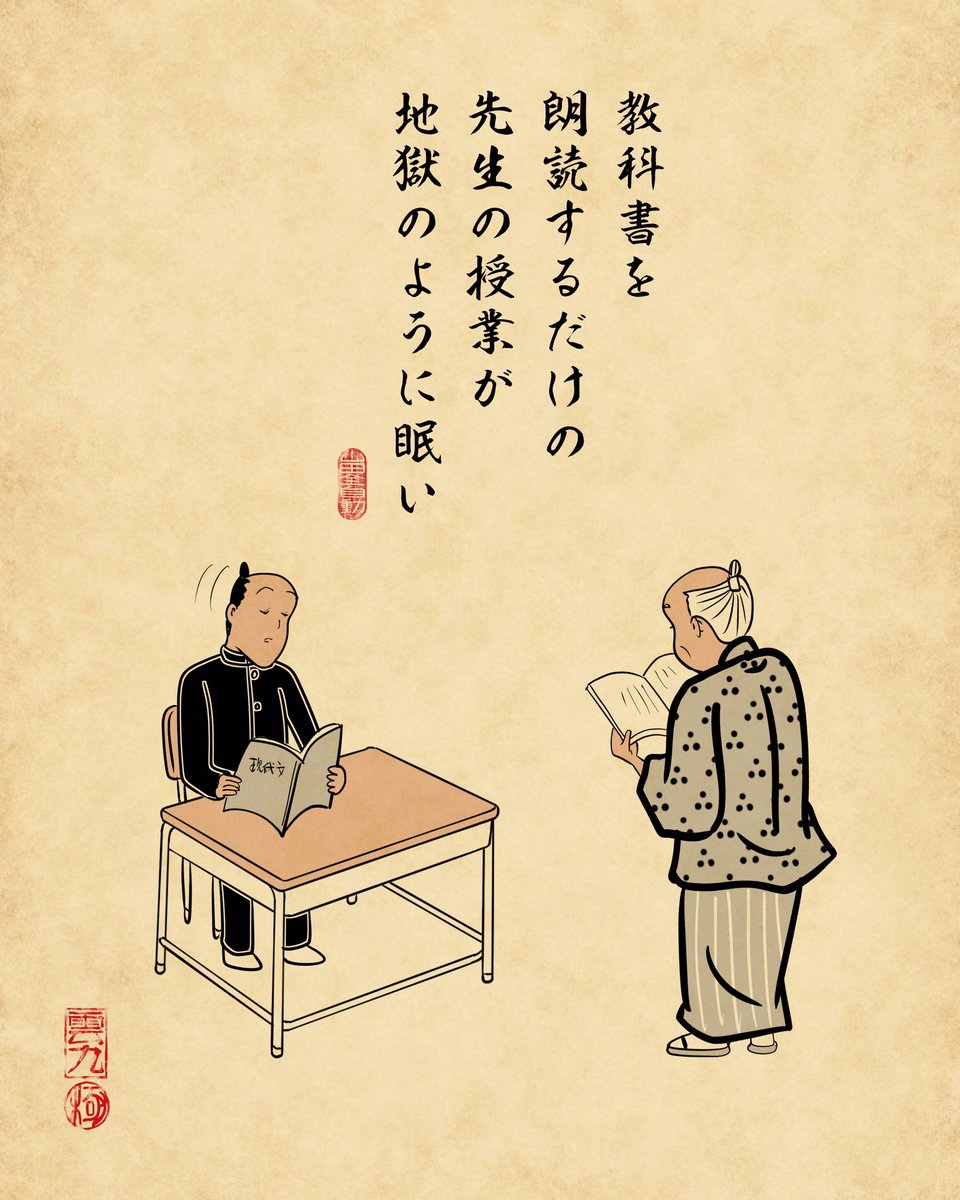 教科書を
朗読するだけの
先生の授業が
地獄のように眠い
現代文